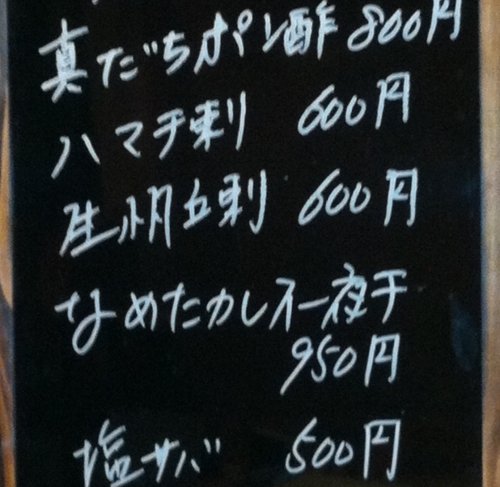 真だちポン酢 800円
ハマチ刺 600円
生帆立刺 600円
なめたカレイ一夜干
950円
塩サバ 500円